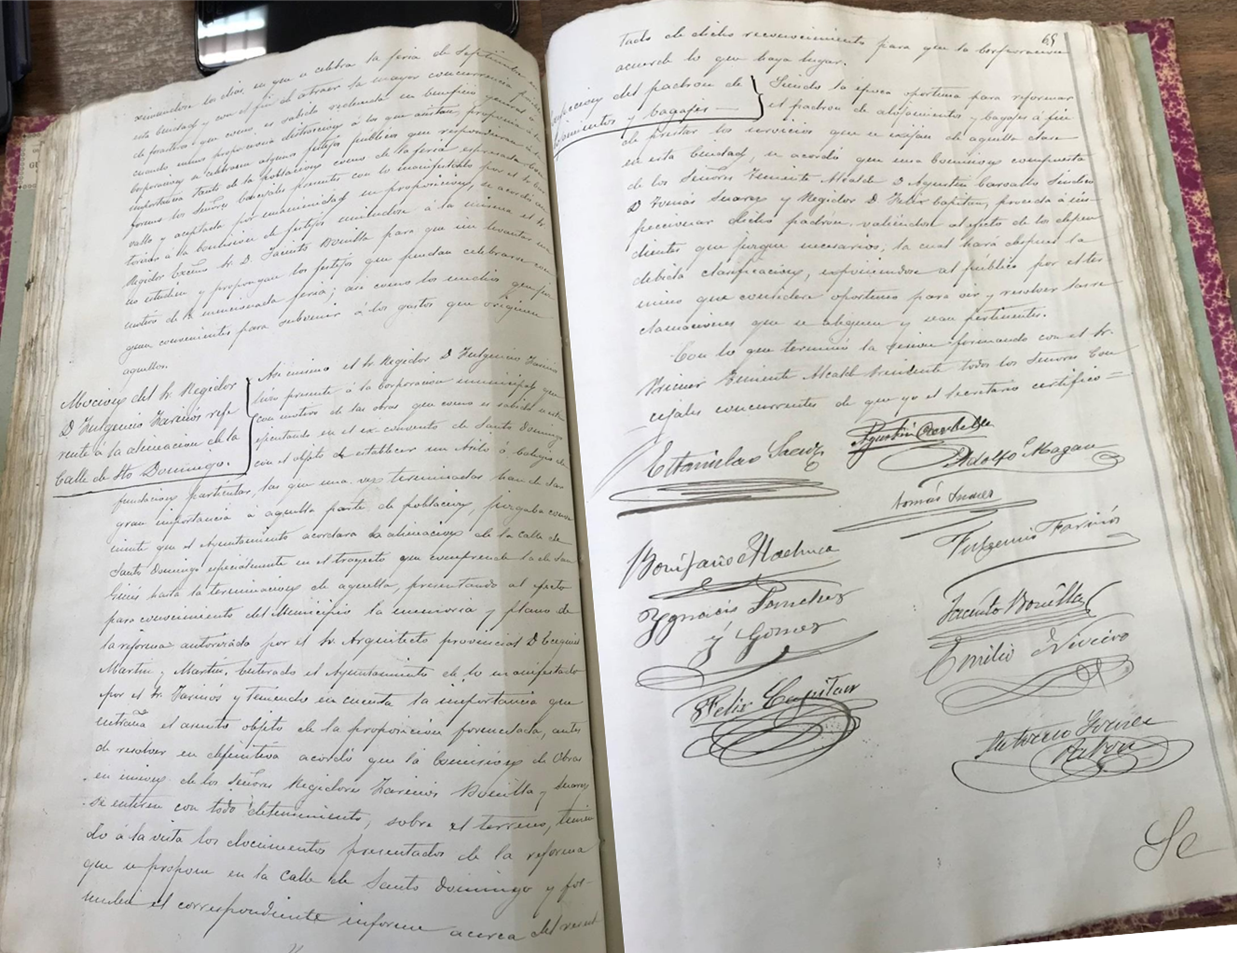 ximandose los dias, en que se celebra la feria de Septiembre en
esta Ciudad y con el fin de atraer la mayor concurrencia posible
de forasteros que como es sabido redunda en beneficio general
cuando menos proporciona distraccion á los que asistan, proponia á la
Corporacion se celebrara algun festejo publico que respondiera á la
importancia tanto de la poblacion como de la feria expresada.
formes los Señores Concejales presentes con lo manifestado por el Sr
y aceptada por unanimidad su proposicion, se acordó
á la Comision de festejos uniendose á la misma el Sr.
Regidor Excmo Sr. D. Jacinto Bonilla para que
se estudien y propongan los festejos que puedan celebrarse con
motivo de la mencionada feria; asi como los medios que juz
guen convenientes para subvenir á los gastos que originen
aquellos.
Mocion del Sr. Regidor
D Fulgencio Farinos refe
rente á la alineacion de la
Calle de Sto Domingo.
Asi mismo el Sr Regidor D. Fulgencio Farinos
hizo presente á la Corporacion municipal que
con motivo de las obras que como es sabido se estan
ejecutando en el ex-convento de Santo Domingo
con el objeto de establecer un Asilo ó Colegio de
fundacion particular, las que una vez terminadas han de dar
gran importancia á aquella parte de poblacion, juzgaba conve
niente que el Ayuntamiento acordara la alineacion de la calle de
Santo Domingo especialmente en el trayecto que comprende la de San
hasta la terminacion de aquella, presentando al efecto
para conocimiento del Municipio la memoria y plano de
la reforma autorizado por el Sr. Arquitecto provincial D. Ezequiel
Martin y Martin, Enterado el Ayuntamiento de lo manifestado
por el Sr Farinos y teniendo en cuenta la importancia que
entraña el asunto objeto de la proposicion presentada, antes
de resolver en definitiva acordó que la Comision de Obras
en union de los Señores Regidores Farinos Bonilla y Suarez
se enteren con todo detenimiento, sobre el terreno, tenien
do á la vista los documentos presentados de la reforma
que se propone en la calle de Santo Domingo y for-
mulen el correspondiente informe acerca del resul-
65
tado de dicho reconocimiento para que la Corporacion
acuerde lo que haya lugar.
del padron de
alojamientos y bagajes
Siendo la época oportuna para reformar
el padron de alojamientos y bagajes á fin
de prestar los servicios que se exijan de aquella clase
en esta Ciudad, se acordó que una Comision compuesta
de los Señores Teniente Alcalde D Agustin Carvallo Sindico
D Tomás Suarez y Regidor D. Felix Capitan, proceda á ins-
peccionar dicho padron, valiendose al efecto de los depen
dientes que juzgue necesarios; la cual hará despues la
debida clasificacion, exponiendose al público por el ter
mino que considere oportuno para oir y resolver las re
clamaciones que se aleguen y sean pertinentes.
Con lo que terminó la sesion firmando con el Sr.
Primer Teniente Alcalde Presidente todos los Señores Con
cejales concurrentes de que yo el Secretario certifico=
Estanislao Saenz
Agustin Carballo
Adolfo Magan
Tomás Suarez
Bonifacio Machuca
Fulgencio Farinós
Ygnacio Sanchez
y Gomez
Jacinto Bonilla
Emilio Niveiro
Felix Capitan
Antonio Gomez
Arbon
Se